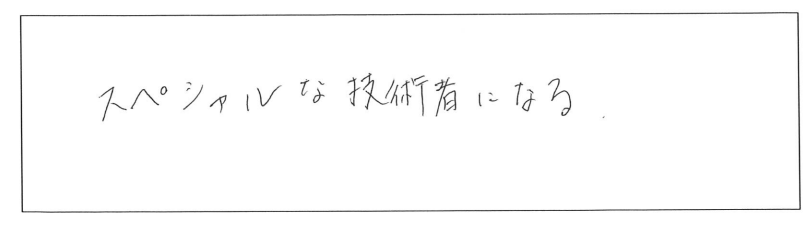 スペシャルな技術者になる.